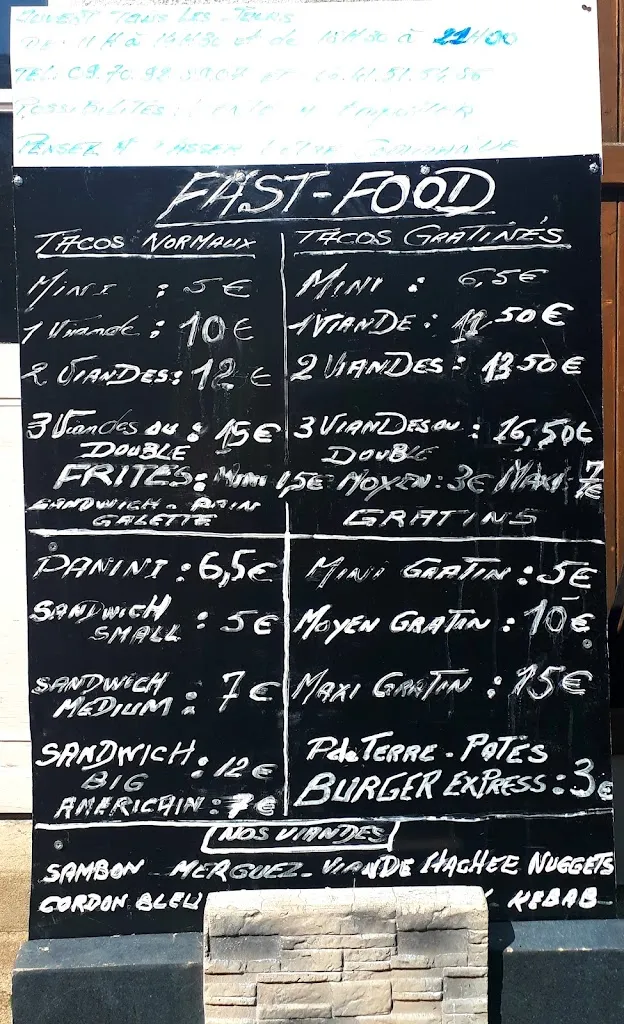 OUVERT TOUS LES JOURS
DE 11H à 14H30 et de 18H30 à 21H00
TEL: 09.70. ET
POSSIBILITÉS:
PENSER A PASSER VOTRE COMMANDE
FAST-FOOD
TACOS NORMAUX
MINI : 5€
1 Viande : 10€
2 VIANDES: 12€
3 Viandes ou : 15€
DOUBLE
TACOS GRATINÉS
MINI : 6,5€
1 VIANDE : 11,50€
2 VIANDES : 13,50€
3 VIANDES OU : 16,50€
DOUBLE
FRITES: MINI 1,5€ MOYEN: 3€ MAXI 7€
SANDWICH - PAIN
GALETTE
PANINI : 6,5€
SANDWICH : 5€
SMALL
SANDWICH : 7€
MEDIUM
SANDWICH : 12€
BIG
AMERICAIN : 7€
GRATINS
MINI GRATIN : 5€
MOYEN GRATIN : 10€
MAXI GRATIN : 15€
P de TERRE - PATES
BURGER EXPRESS : 3€
NOS VIANDES
SAMBON - MERGUEZ - VIANDE HACHEE NUGGETS
CORDON BLEU KEBAB